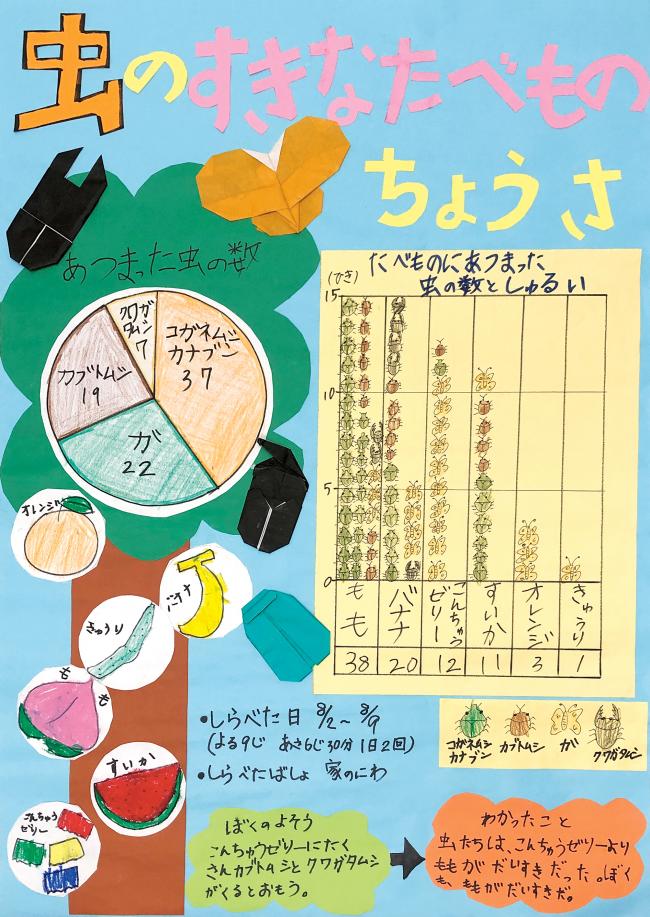 虫のすきなたべもの
ちょうさ
あつまった虫の数
コガネムシ
カナブン
37
クワガタムシ
7
カブトムシ
19
ガ
22
たべものにあつまった
虫の数としゅるい
(ひき)
15
10
5
0
もも
バナナ
こんちゅうゼリー
すいか
オレンジ
きゅうり
38 20 12 11 3 1
オレンジ
バナナ
きゅうり
もも
すいか
こんちゅう
ゼリー
コガネムシ
カナブン
カブトムシ
ガ
クワガタムシ
•しらべた日 8/2〜8/9
(よる9じ あさ6じ30分 1日2回)
•しらべたばしょ 家のにわ
ぼくのよそう
こんちゅうゼリーにたく
さんカブトムシとクワガタムシ
がくるとおもう。
わかったこと
虫たちは、こんちゅうゼリーより
ももがだいすきだった。ぼく
も、ももがだいすきだ。